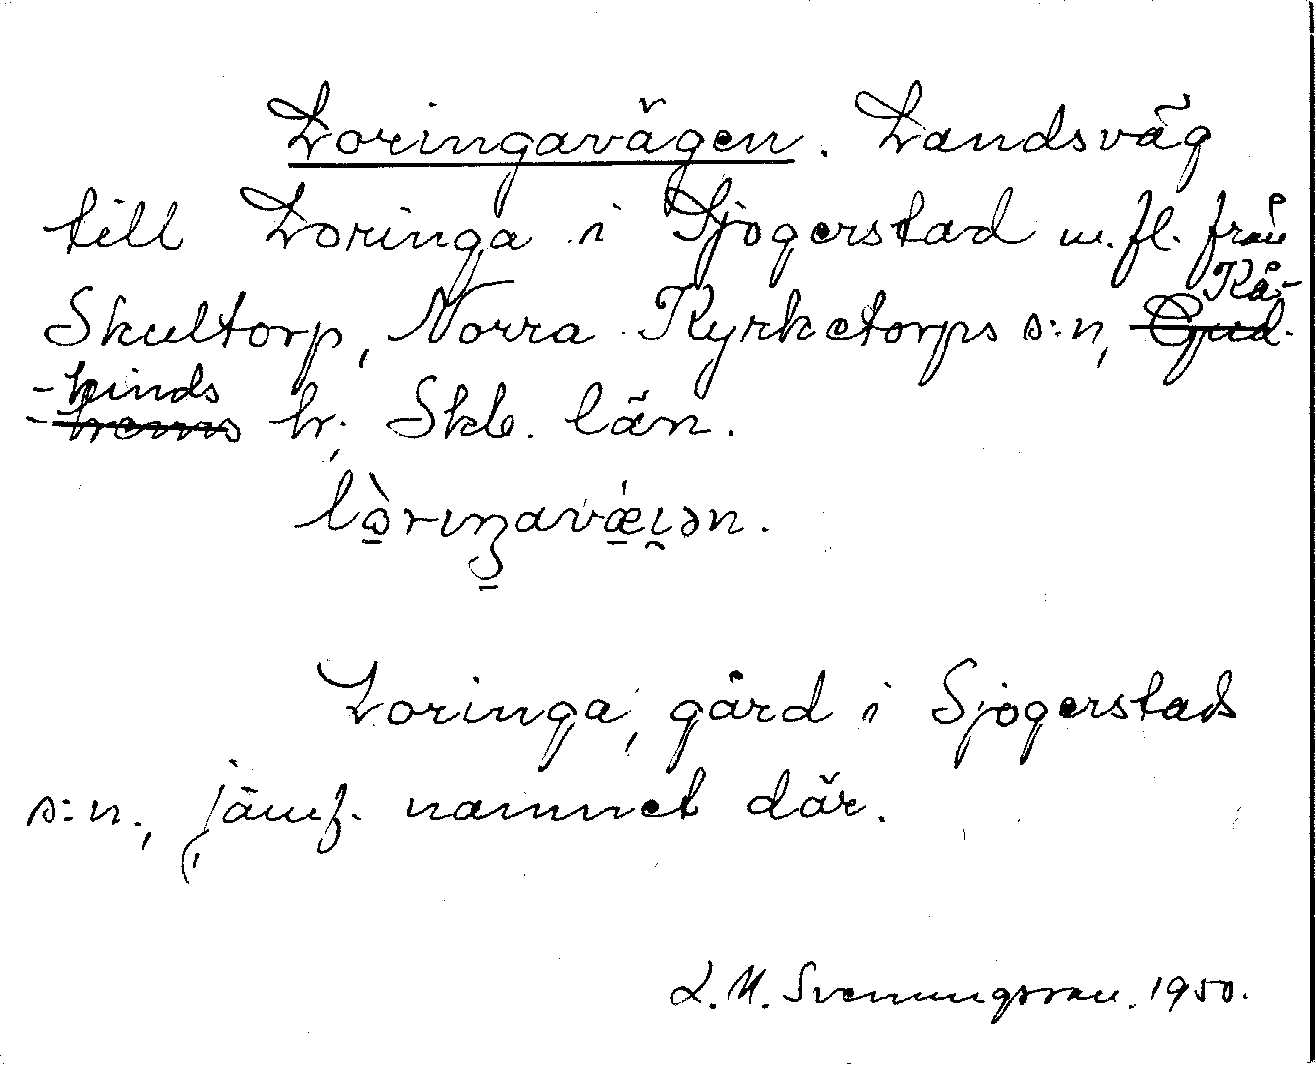 Loringavägen. Landsväg
till Loringa i Sjogerstad m.fl. från
Skultorp, Norra Kyrketorps s:n, Gud- Kå-
-hems -kinds h., Skb. län.
Loringa, gård i Sjogerstads
s:n., jämf. namnet där.
L. M. Svenungsson. 1950.